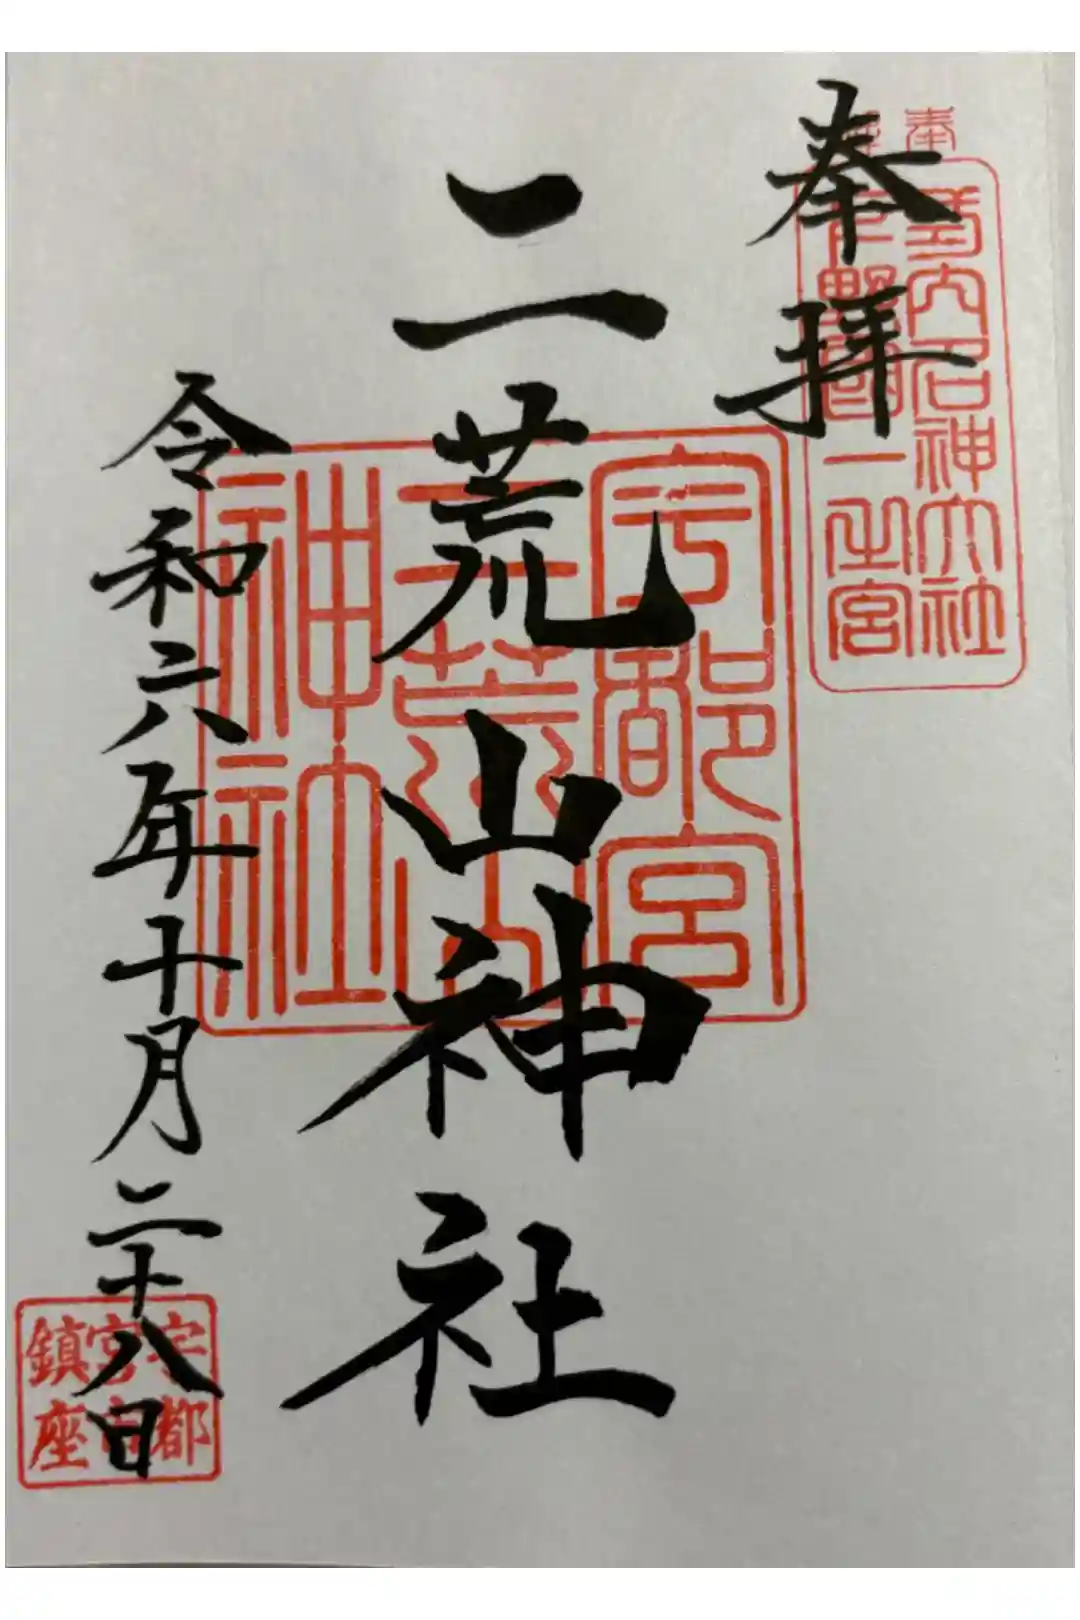 奉拝
二荒山神社
令和六年十月二十八日
奉拝
式内名神大社
下野國一之宮
宇都宮
二荒山
神社
宇都
宮市
鎮座